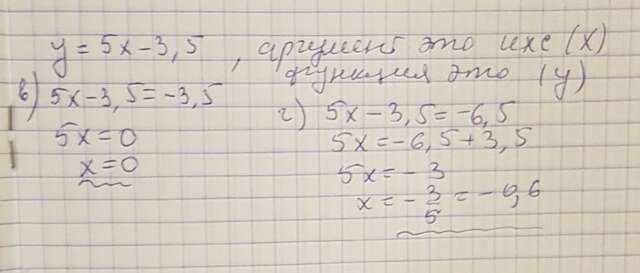 y = 5x - 3,5 , аргумент это икс (x)
функция это (y)
в) 5x - 3,5 = -3,5
5x = 0
x = 0
г) 5x - 3,5 = -6,5
5x = -6,5 + 3,5
5x = -3
x = -3/5 = -0,6